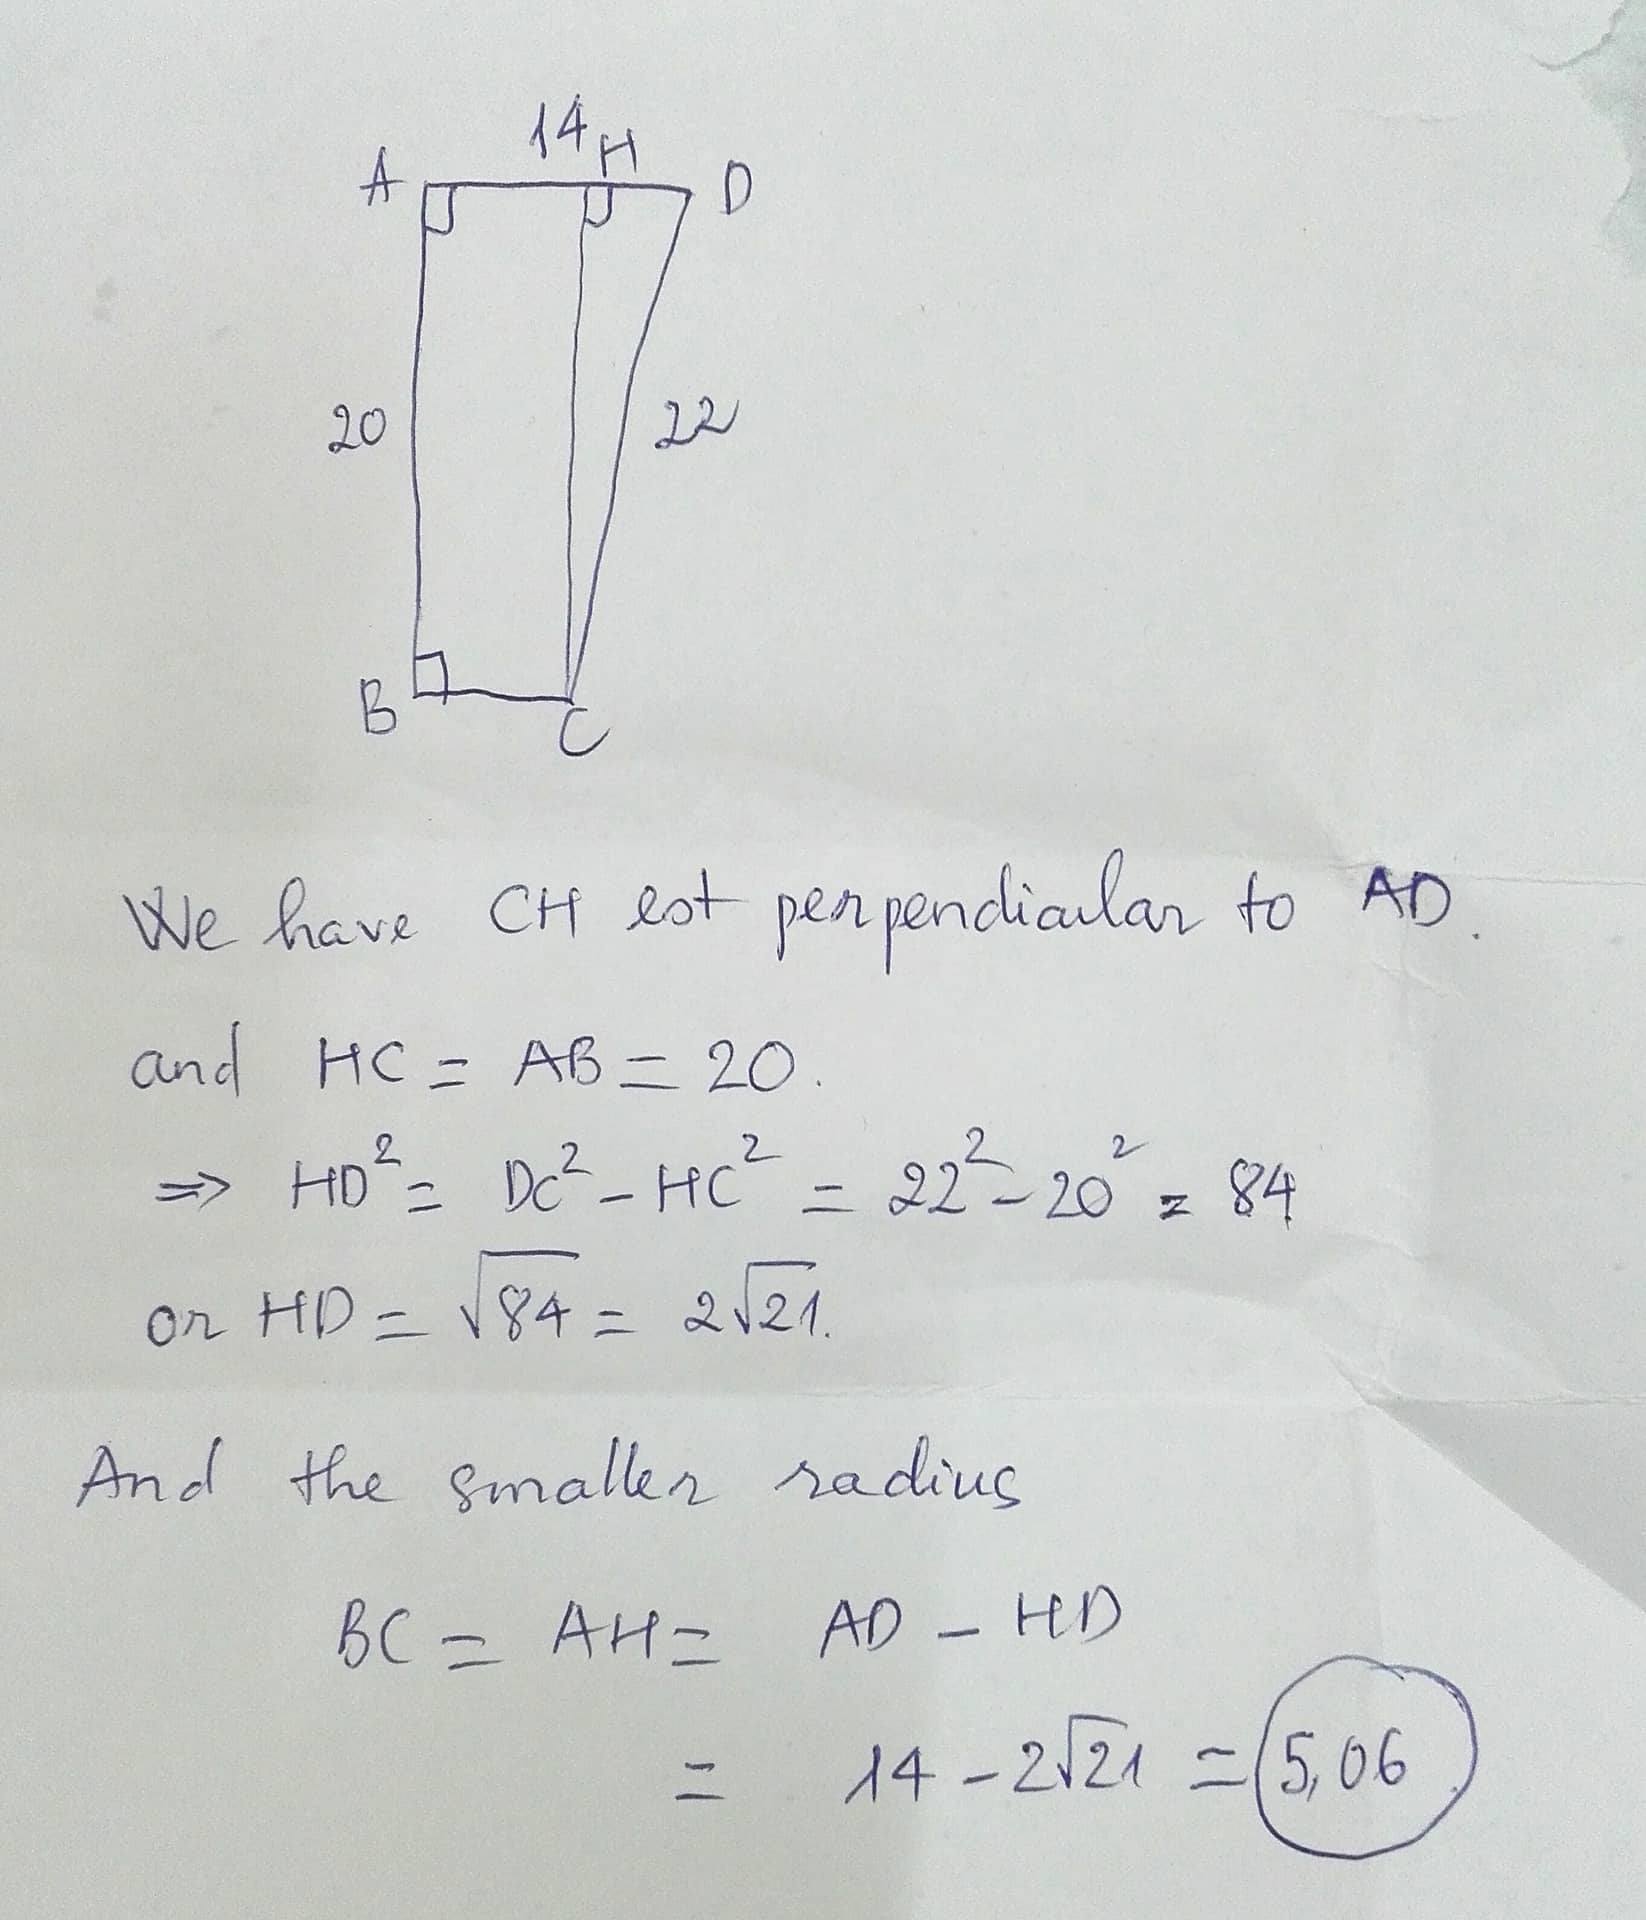 14
H
A
D
20
22
B
C
We have CH est perpendicular to AD.
and HC = AB = 20.
⇒ HD² = DC² - HC² = 22² - 20² = 84
or HD = √84 = 2√21.
And the smaller radius
BC = AH = AD - HD
= 14 - 2√21 = 5,06